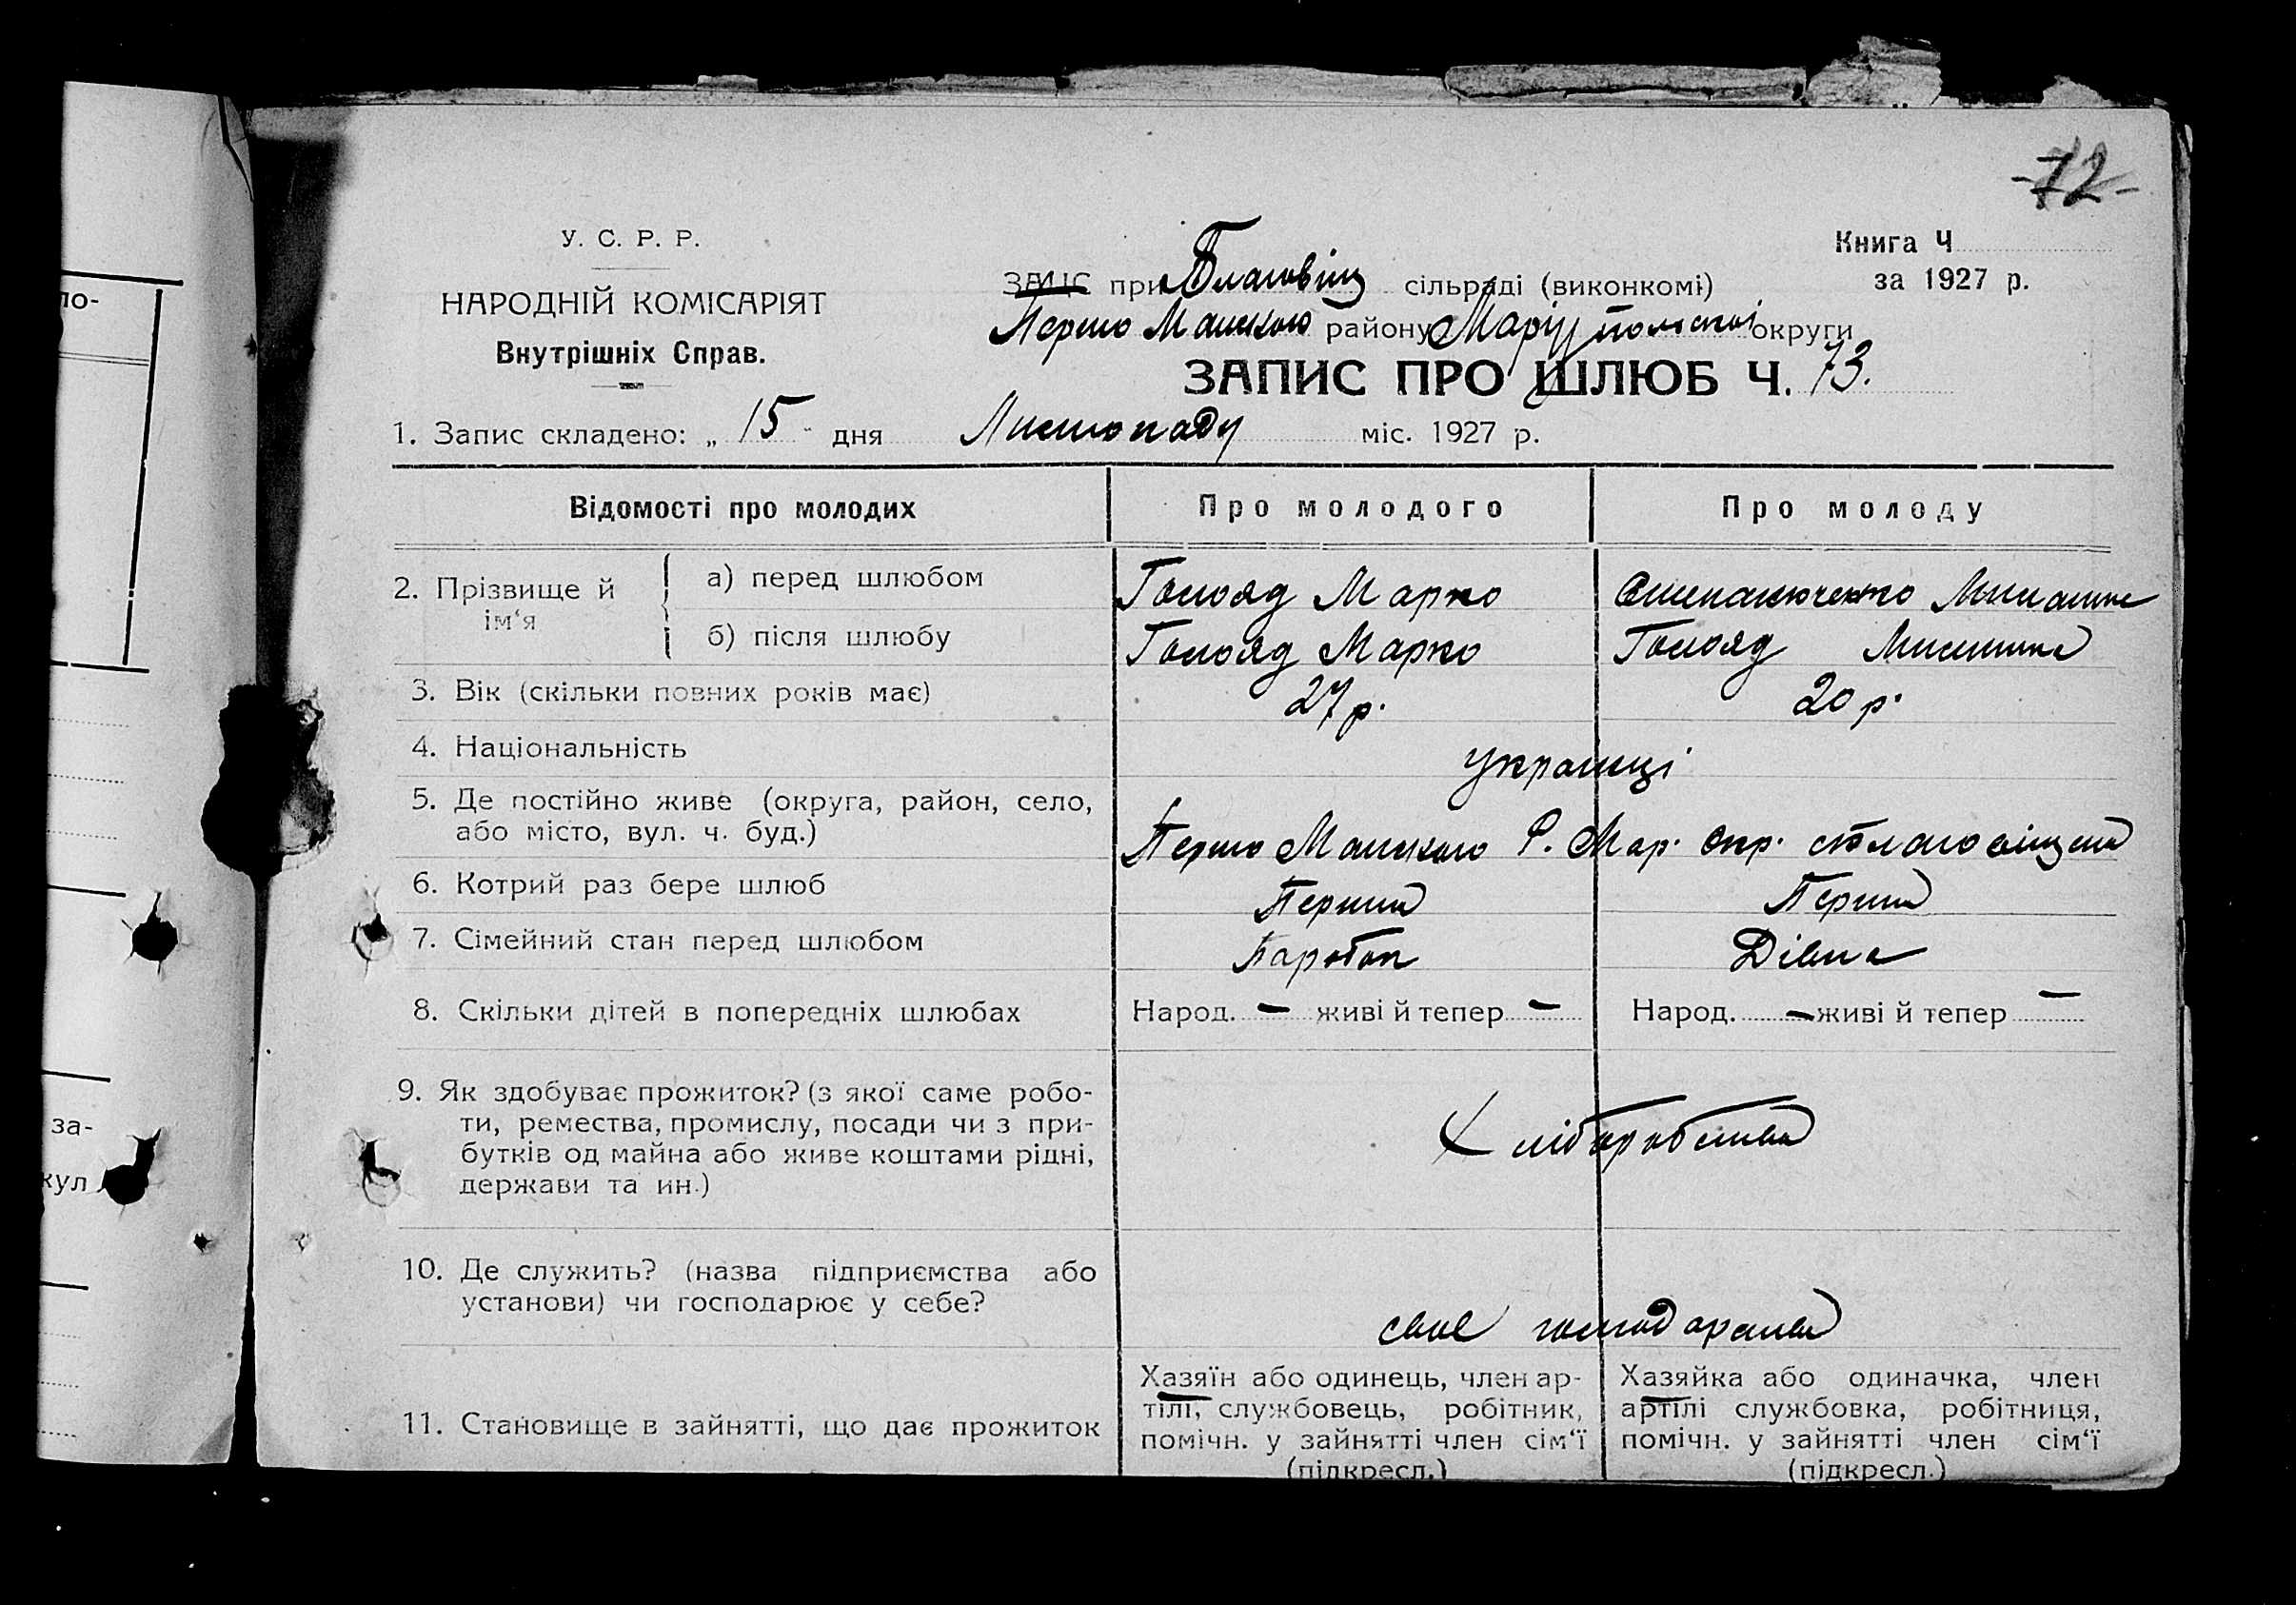 -72-
У. С. Р. Р.
НАРОДНІЙ КОМІСАРІЯТ
Внутрішніх Справ.
Книга Ч
за 1927 р.
ЗАЦС при Благовіщ сільраді (виконкомі)
Першо Майського району Маріупольської округи
ЗАПИС ПРО ШЛЮБ Ч. 73.
1. Запис складено: „ 15 " дня Листопаду міс. 1927 р.
Відомості про молодих
Про молодого
Про молоду
2. Прізвище й ім‘я
а) перед шлюбом
Марко
б) після шлюбу
Марко
3. Вік (скільки повних років має)
27 р.
20 р.
4. Національність
Українці
5. Де постійно живе (округа, район, село,
або місто, вул. ч. буд.)
Першо Майського Р. Мар. Окр.
6. Котрий раз бере шлюб
Перший
Перший
7. Сімейний стан перед шлюбом
Паробок
Дівка
8. Скільки дітей в попередніх шлюбах
Народ. — живі й тепер —
Народ. — живі й тепер —
9. Як здобуває прожиток? (з якої саме робо-
ти, ремества, промислу, посади чи з при-
бутків од майна або живе коштами рідні,
держави та ин.)
Хліборобство
10. Де служить? (назва підприємства або
установи) чи господарює у себе?
своє господарство
11. Становище в зайнятті, що дає прожиток
Хазяїн або одинець, член ар-
тілі, службовець, робітник,
помічн. у зайнятті член сім‘ї
(підкресл.)
Хазяйка або одиначка, член
артілі службовка, робітниця,
помічн. у зайнятті член сім‘ї
(підкресл.)
по-
за-
кул